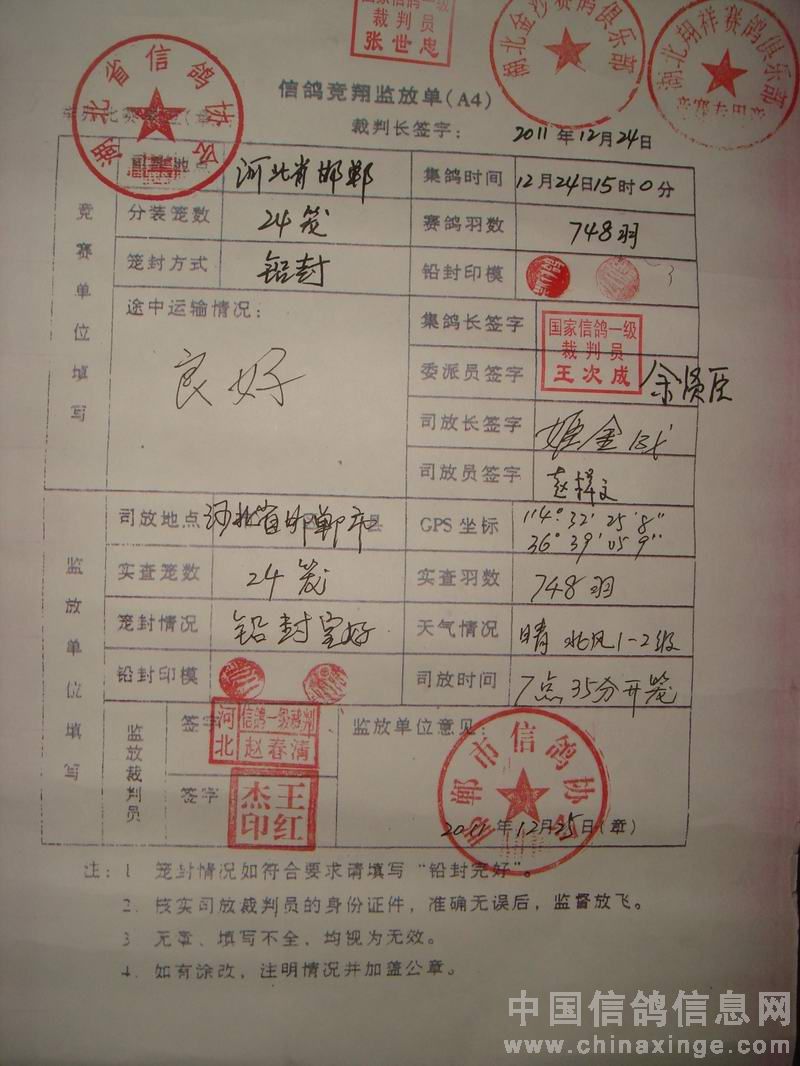 国家信鸽一级
裁判员
张世忠
湖北金沙赛鸽俱乐部
湖北翔祥赛鸽俱乐部
竞赛专用章
湖北省信鸽协会
信鸽竞翔监放单(A4)
裁判长签字:
2011年12月24日
竞赛单位填写
河北省邯郸
集鸽时间 12月24日15时0分
分装笼数 24笼 赛鸽羽数 748羽
笼封方式 铅封 铅封印模
途中运输情况:
良好
集鸽长签字
国家信鸽一级
裁判员
王次成
委派员签字 余贤臣
司放长签字
司放员签字
监放单位填写
司放地点 河北省邯郸市 县 GPS坐标 114°32'25'8"
36°39'05'9"
实查笼数 24笼 实查羽数 748羽
笼封情况 铅封完好 天气情况 晴 北风1-2级
铅封印模 司放时间 7点35分开笼
监放裁判员
签字
河北 信鸽一级裁判
赵春清
签字
王红杰印
监放单位意见:
邯郸市信鸽协会
2011年12月25日(章)
注: 1. 笼封情况如符合要求请填写“铅封完好”。
2. 核实司放裁判员的身份证件,准确无误后,监督放飞。
3. 无章、填写不全、均视为无效。
4. 如有涂改,注明情况并加盖公章。
中国信鸽信息网
www.chinaxinge.com